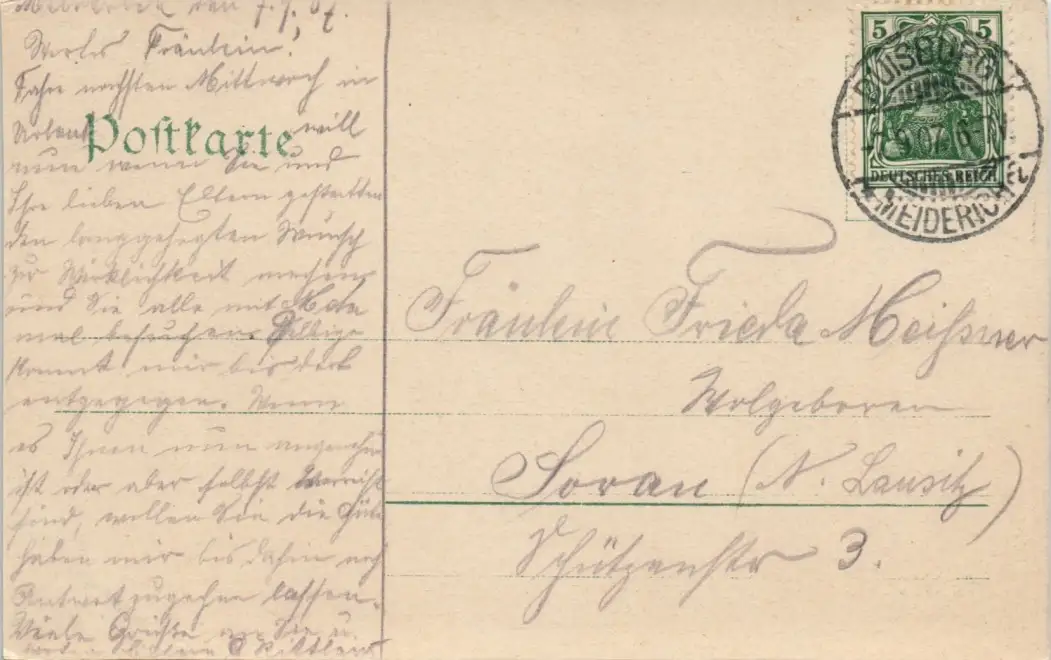 den 7.9.07.
Wertes Fräulein!
Fahre nächsten Mittwoch in
Urlaub will
Postkarte
nun wenn Sie und
Ihre lieben Eltern gestatten
den langgehegten Wunsch
zur Wirklichkeit machen
und Sie alle mit
mal besuchen.
kommt mir bis dort
entgegegen. Wenn
es Ihnen nun angenehm
ist oder aber selbst verreist
sind, wollen Sie die Güte
haben mir bis dahin noch
Antwort zugehen lassen.
Viele Grüße an Sie u.
5 5
DEUTSCHES REICH
DUISBURG
7.9.07.6-7N.
MEIDERICH
Fräulein Frieda Meißner
Wolgeboren
Sorau (N. Lausitz)
Schützenstr 3.